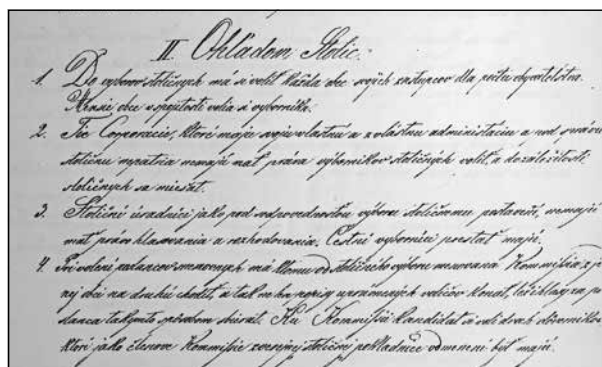 II Ohľadom Stolíc.
1. Do výborov stoličných má si voliť každá obec svojich zástupcov dla počtu obyvatelstva.
Menšie obce v spojitosti volia si výborníka.
2. Tie Corporacie, ktoré majú svoju vlastnú a zvláštnu administráciu a pod správu
stoličnú nepatria nemajú mať práva výborníkov stoličných voliť, a do záležitostí
stoličných sa miešať.
3. Stoliční úradníci jako pod odpovednosťou výboru stoličnému postavení, nemajú
mať práva hlasovania a rozhodovania. Čestní výborníci prestať majú.
4. Pri volení má ktomu od stoličného výboru menovaná Kommissia z
nej obci na druhú chodiť, a tak na voličov konať, hlasy za
takýmto spôsobom sbierať. Ku Kommissii kandidáti si volí dvoch dôverníkov
ktorí jako členovia Kommissie stoličnej pokladnice odmenení byť majú.